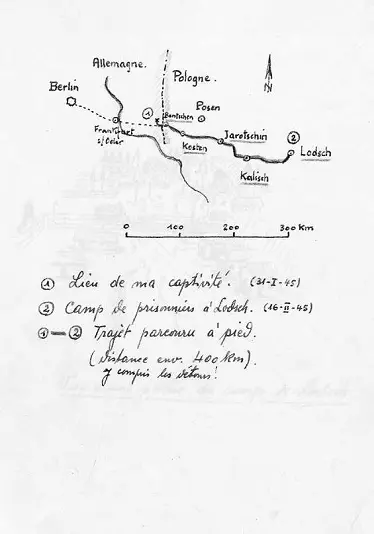 Allemagne.
Pologne.
Berlin
①
Bentschen
Posen
Frankfurt
s/Oder
Kosten
Jarotschin
②
Lodsch
Kalisch
0 100 200 300 Km
① Lieu de ma captivité. (31-I-45)
② Camp de prisonniers à Lodsch. (16-II-45)
①—② Trajet parcouru à pied.
(Distance env. 400 km).
y compris les détours!